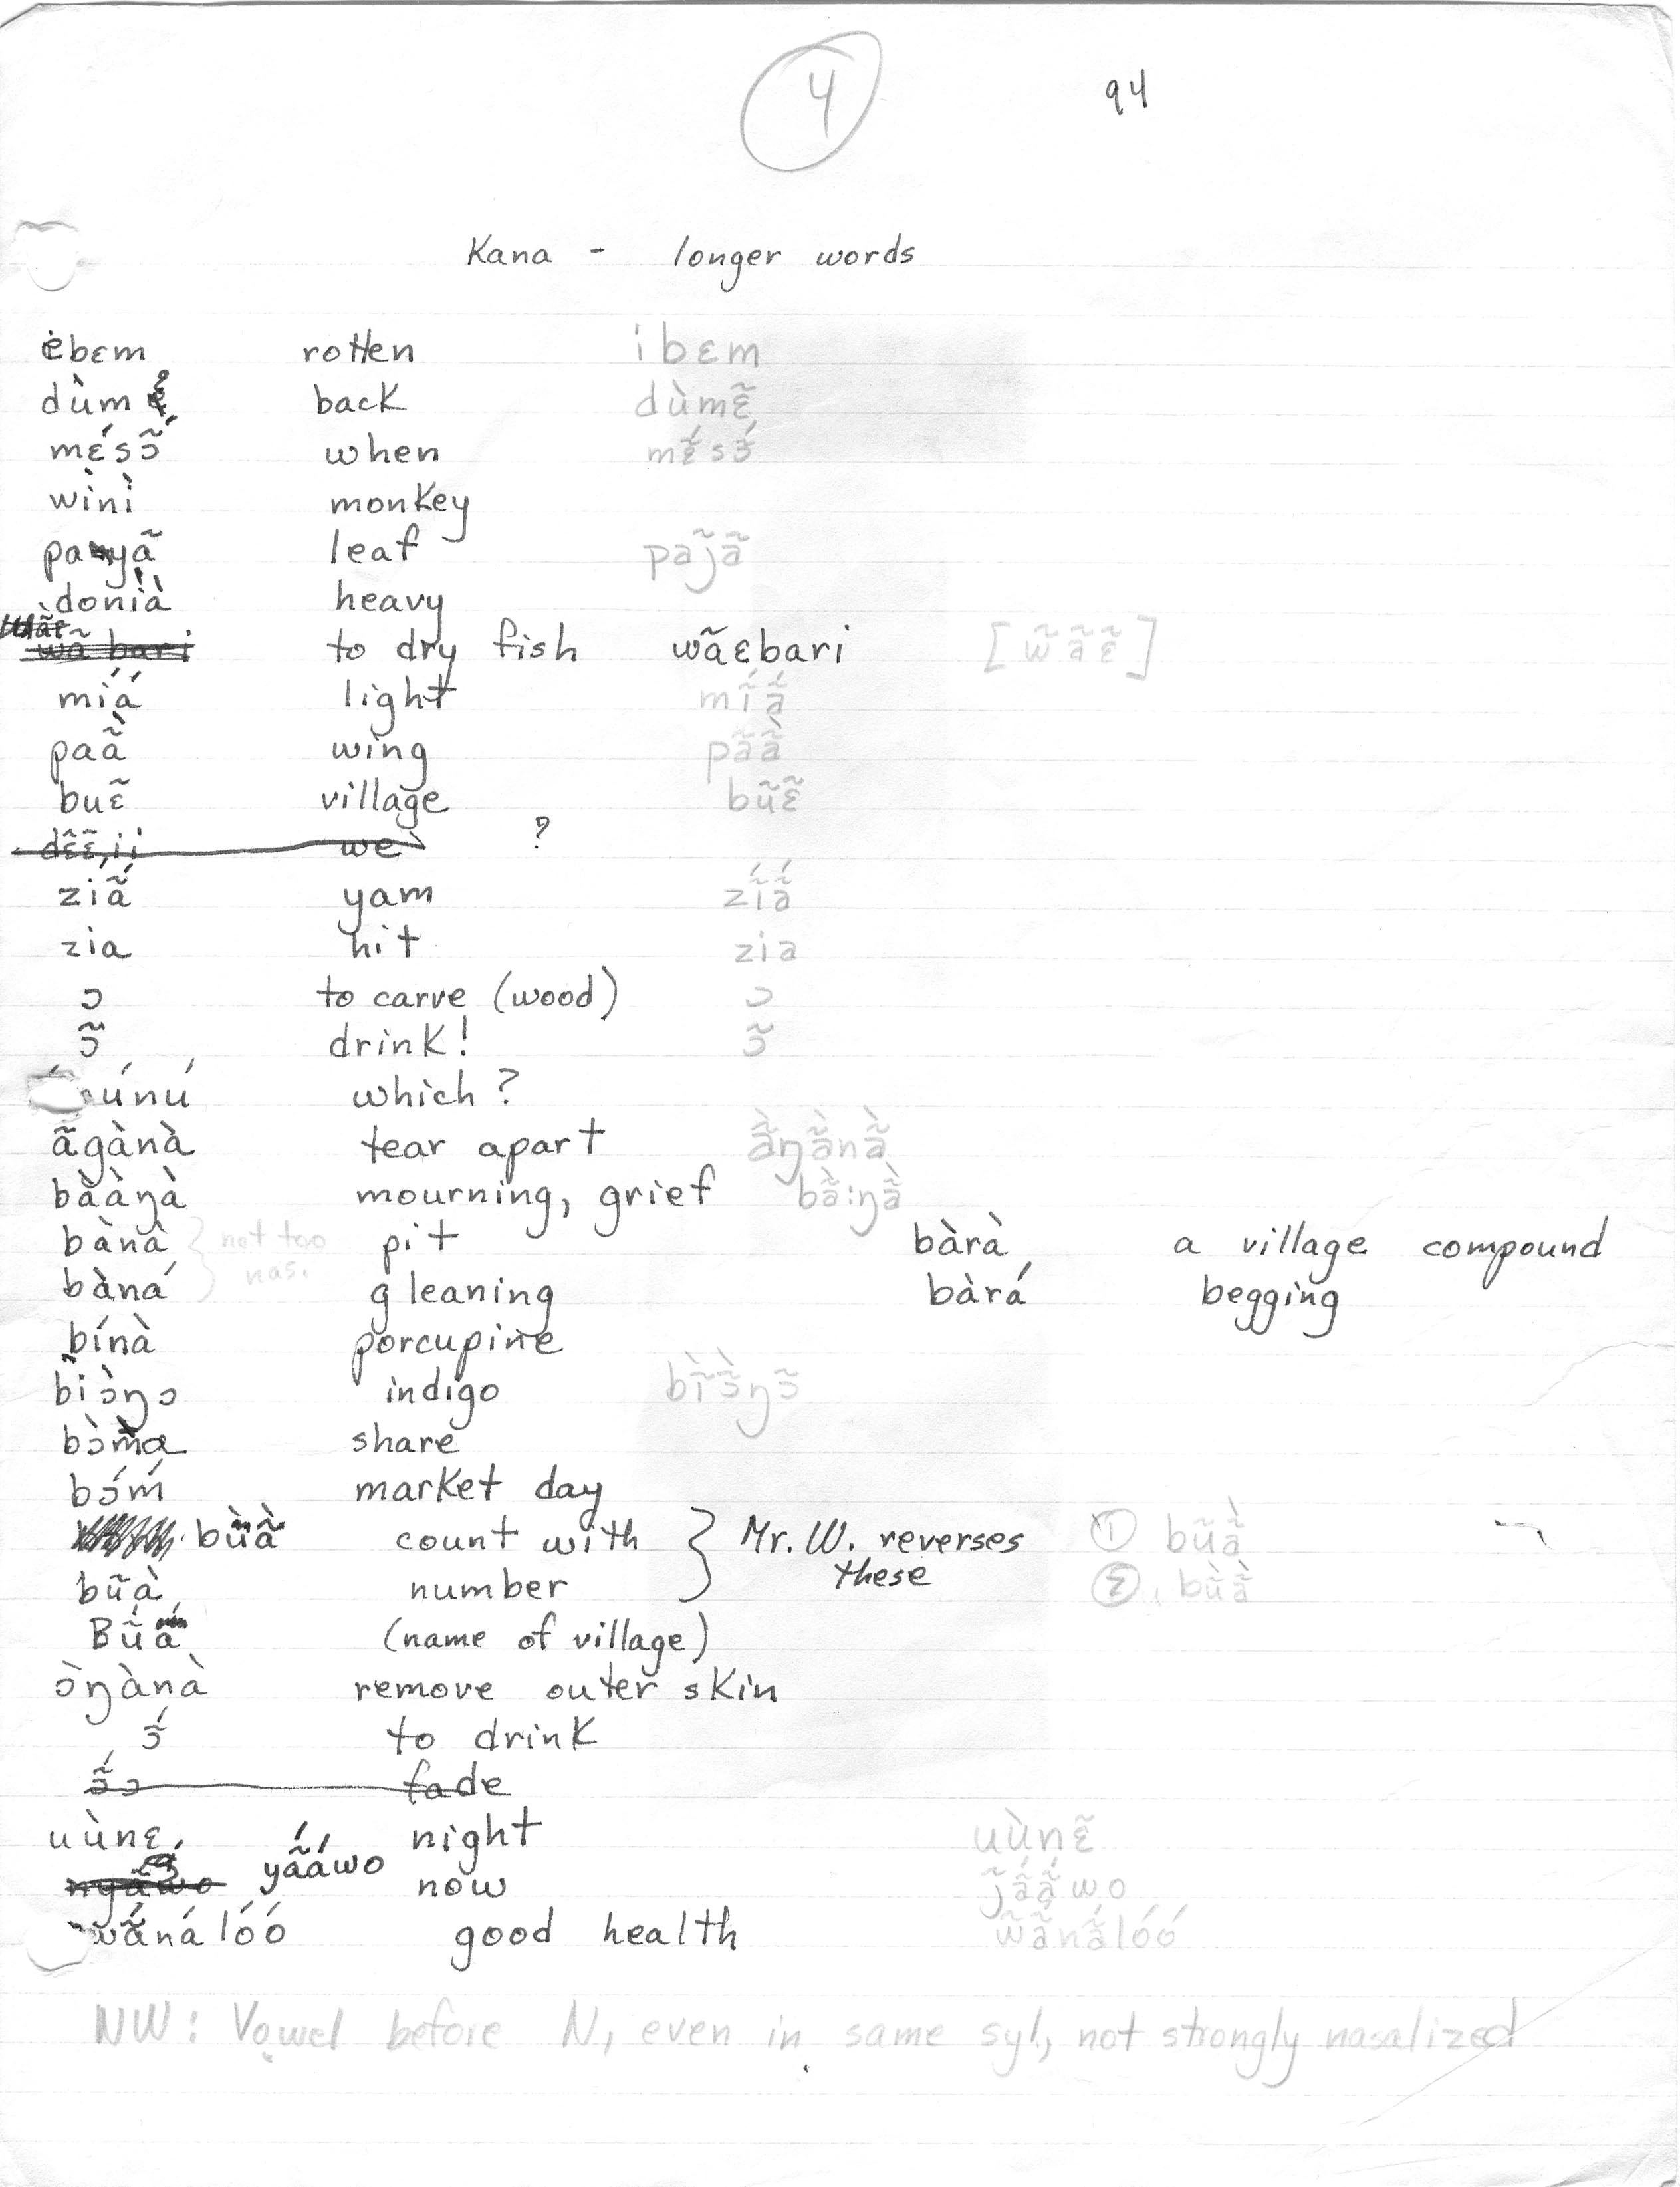 4 94
Kana - longer words
ebɛm rotten ibɛm
dùm back dùmɛ̃
mɛ́sɔ̃́ when mɛ̃́sɔ̃́
wìnì monkey
payã leaf paj̃ã
donìà heavy
wã bari to dry fish wãɛbari [w̃ãɛ̃]
míá light mĩ́ã́
paã̀ wing pãã̀
buɛ̃ village bũɛ̃
dɛ̃ɛ̃ ii we ?
ziã́ yam zĩ́ã́
zia hit zia
ɔ to carve (wood) ɔ
ɔ̃ drink! ɔ̃
únú which?
ãgànà tear apart ã̀ŋã̀nã̀
bààŋà mourning, grief bã̀:ŋã̀
bànà } not too pit bàrà a village compound
bàná nas. gleaning bàrá begging
bínà porcupine
bìɔ̀ŋɔ indigo bĩ̀ɔ̃̀ŋɔ̃
bɔ̀ma share
bɔ́ḿ market day
bũ̀ã̀ count with } Mr. W. reverses ① bũã̀
bũà number these ②. bũ̀ã̀
Bṹá (name of village)
ɔ̀ŋànà remove outer skin
ɔ̃́ to drink
ɔ̃́ɔ fade
uùnɛ night uùnɛ̃
yã́áwo now j̃ã́ã́wo
wã́nálóó good health w̃ã́nã́lóó
NW: Vowel before N, even in same syl, not strongly nasalized